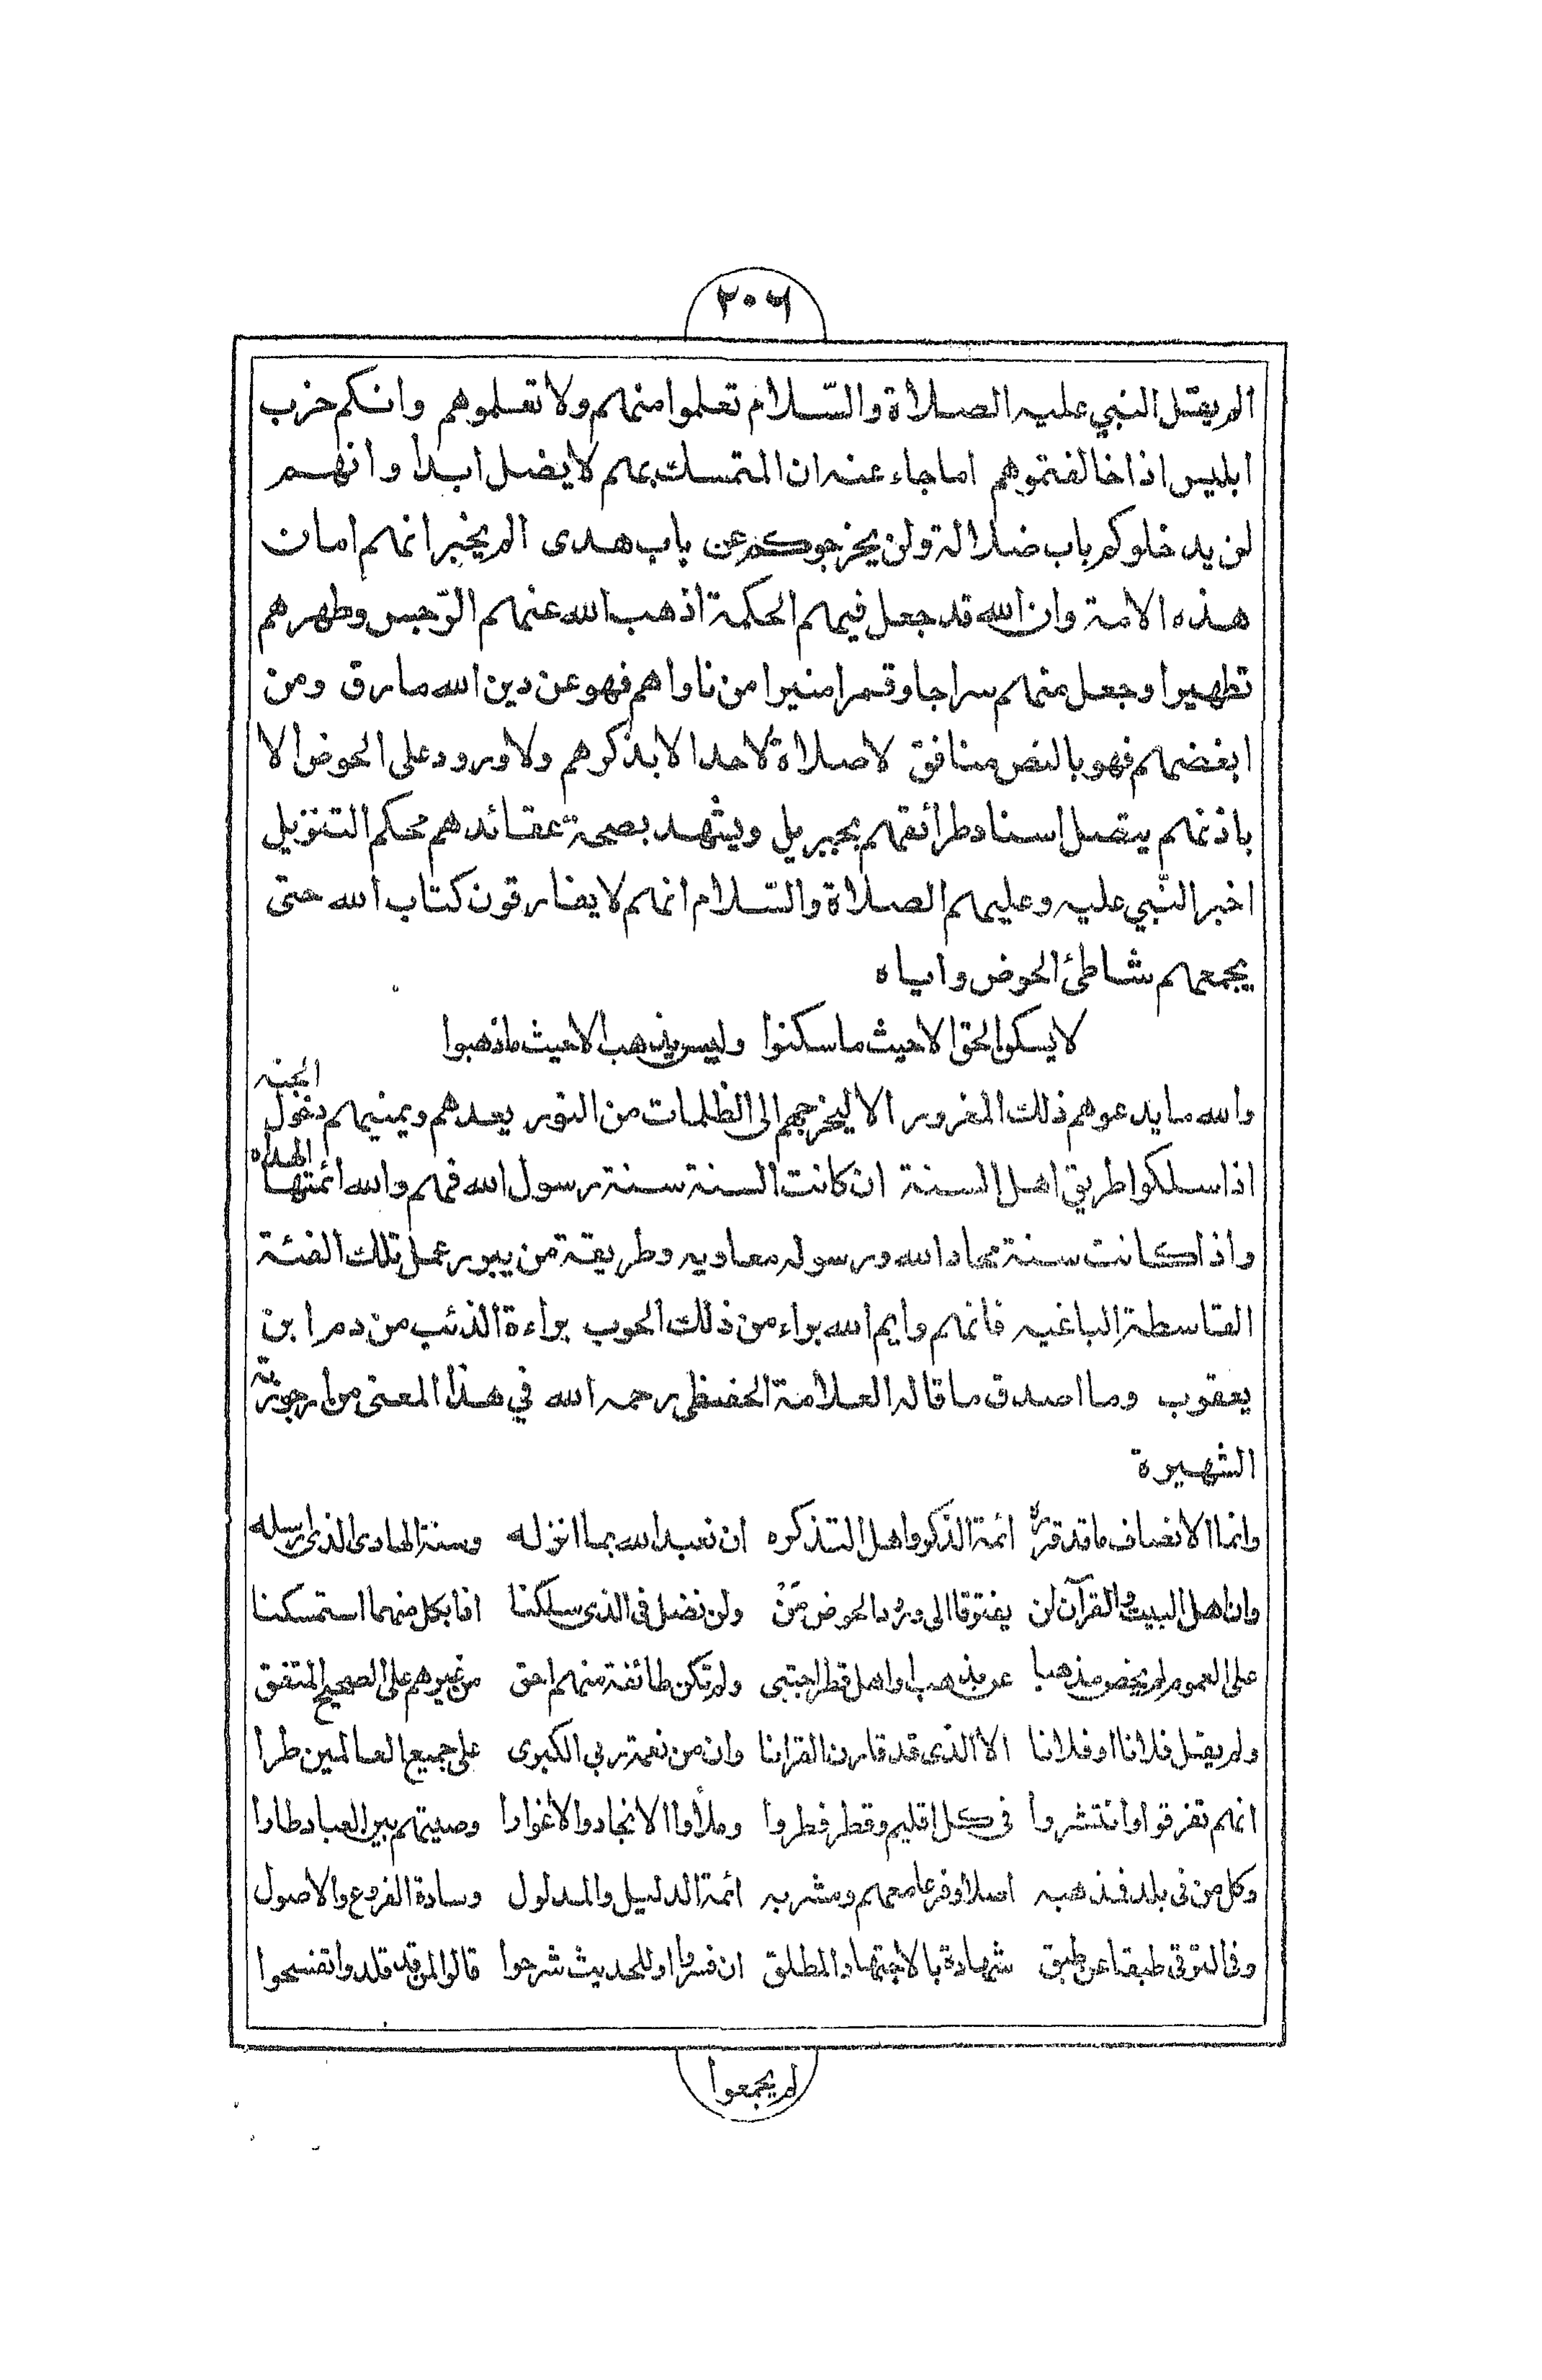 ٢٠٦
الم يقتل النبي عليه الصلاة والسّلام تعلموا منهم ولا تعلموهم وانكم حزب
ابليس اذا خالفتموهم اما جاء عنه ان المتمسك بهم لا يضل ابدا وانهم
لن يدخلوكم باب ضلالة ولن يخرجوكم عن باب هدى الم يخبر انهم امان
هذه الامة وان الله قد جعل فيهم الحكمة اذهب الله عنهم الرّجس وطهرهم
تطهيرا وجعل منهم سراجا وقمرا منيرا من ناواهم فهو عن دين الله مارق ومن
ابغضهم فهو بالنص منافق لا صلاة لاحد الا بذكرهم ولا ورود على الحوض الا
باذنهم يتصل اسناد طرائقهم بجبريل ويشهد بصحة عقائدهم محكم التنزيل
اخبر النّبي عليه وعليهم الصلاة والسّلام انهم لا يفارقون كتاب الله حتى
يجمعهم شاطئ الحوض واياه
لا يسكن الحق الا حيث ما سكنوا وليس يذهب الا حيث ما ذهبوا
والله ما يدعوهم ذلك المغرور الا ليخرجهم الى الظلمات من النور يعدهم ويمنيهم دخول الجنه
اذا سلكوا طريق اهل السنة ان كانت السنة سنة رسول الله فهم والله ائمتها الهداه
واذا كانت سنة محاد الله ورسوله معاويه وطريقة من يبور عمل تلك الفئة
القاسطة الباغيه فانهم وايم الله براء من ذلك الحوب براءة الذئب من دم ابن
يعقوب وما اصدق ما قاله العلامة الحفظي رحمه الله في هذا المعنى من ارجوزته
الشهيرة
وانما الانصاف ما قد قرره ائمة الذّكر واهل التذكره ان نعبد الله بما انزله وسنة الهادى الذى ارسله
وان اهل البيت والقرآن لن يفترقا الى ورود الحوض مَنْ ولن نضل فى الذى سلكنا اذا بكل منهما استمسكنا
على العموم لم يخص مذهبا عن مذهب او اهل قطر اجتبى ولم تكن طائفة منهم احق من غيرهم على الصحيح المتفق
ولم يقل فلانا او فلانا الا الذى قد قارن القرانا وان من نعمة ربي الكبرى على جميع العالمين طرا
انهم تفرقوا وانتشروا فى كل اقليم وقطر فطروا وملأوا الانجاد والاغوارا وصيتهم بين العباد طارا
وكل من فى بلد فمذهبه اصلا وفرعا معهم ومشربه ائمة الدليل والمدلول وسادة الفروع والاصول
وفى الترقي طبقا عن طبق شهادة بالاجتهاد المطلق ان فسروا او للحديث شرحوا قالوا لمن قد قلدوا تفسحوا
لم يجمعوا